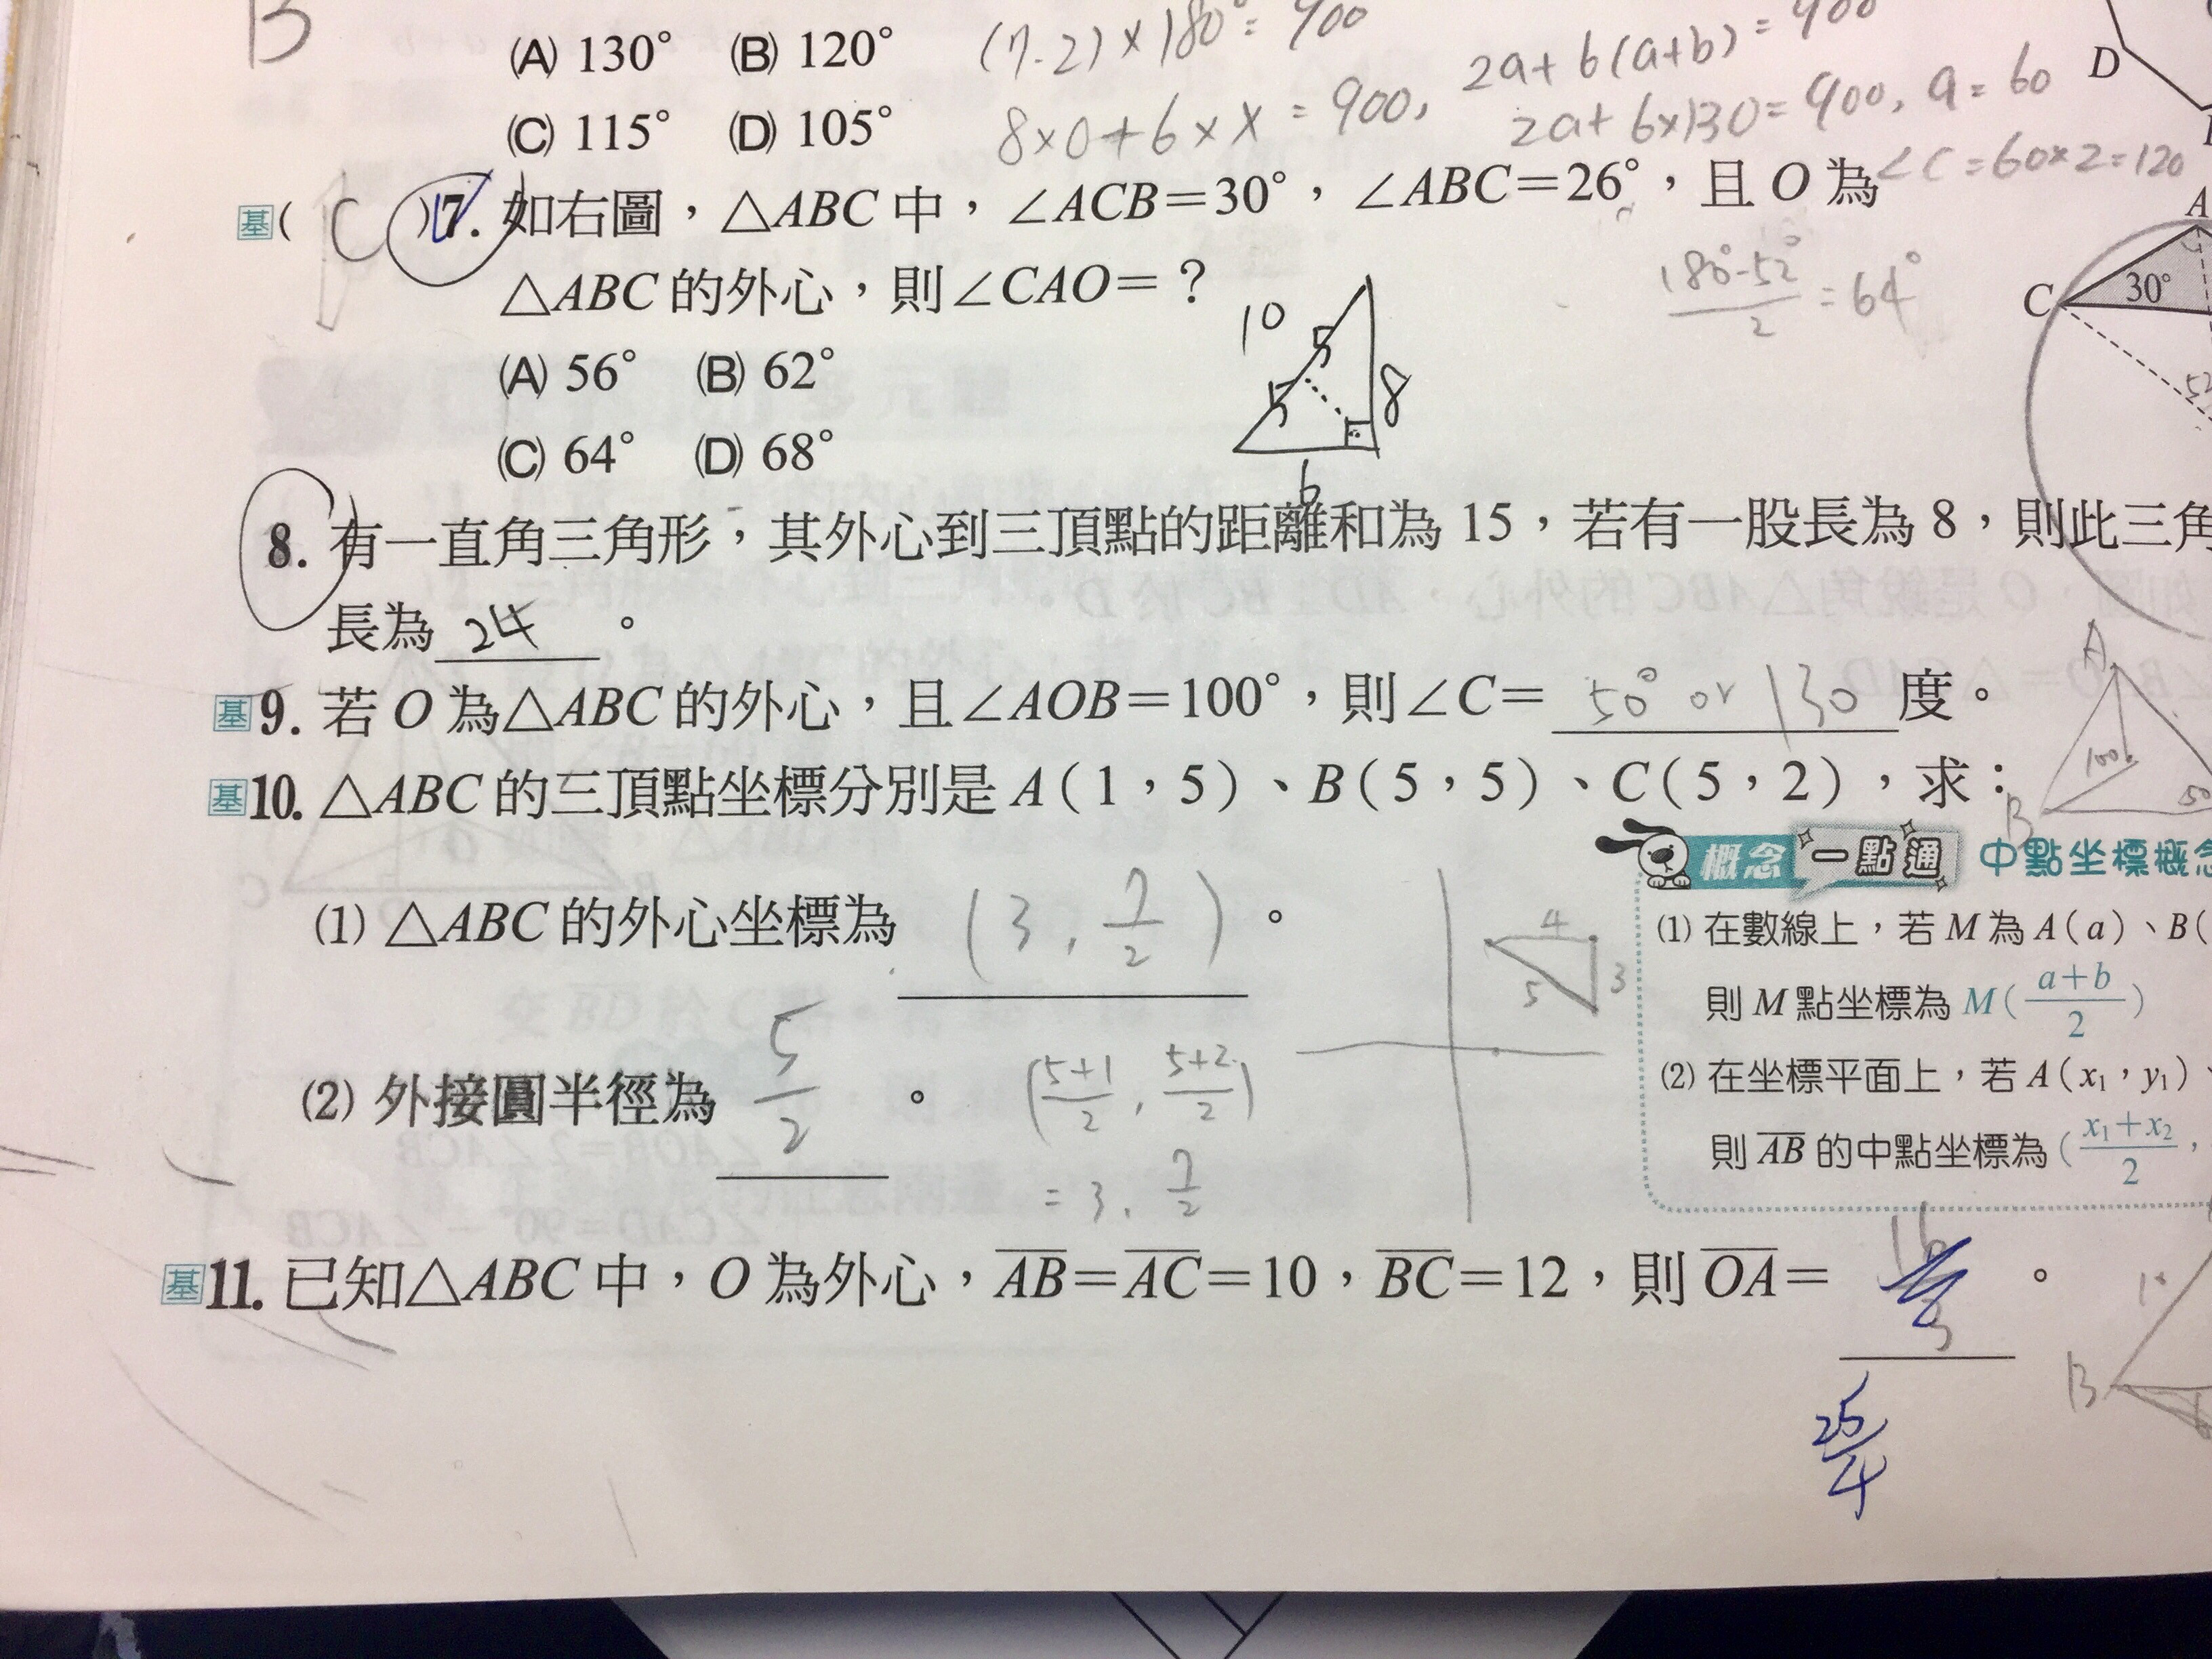 B
(A) 130° (B) 120°
(7-2)×180°=900
2a+6(a+b)=900
D
(C) 115° (D) 105°
8×0+6×x=900,
2a+6×130=900, a=60
∠C=60×2=120
基( C )7. 如右圖，△ABC 中，∠ACB=30°，∠ABC=26°，且 O 為
△ABC 的外心，則∠CAO=？
180°-52°/2=64°
A
C
30°
52
(A) 56° (B) 62°
(C) 64° (D) 68°
10
5
5
8
6
8. 有一直角三角形，其外心到三頂點的距離和為 15，若有一股長為 8，則此三角
長為 24 。
基9. 若 O 為△ABC 的外心，且∠AOB=100°，則∠C= 50° or 130 度。
A
100
B
50
基10. △ABC 的三頂點坐標分別是 A(1，5)、B(5，5)、C(5，2)，求：
(1) △ABC 的外心坐標為 (3, 7/2) 。
4
3
5
(2) 外接圓半徑為 5/2 。
(5+1/2, 5+2/2)
=3, 7/2
概念一點通 中點坐標概念
(1) 在數線上，若 M 為 A(a)、B(
則 M 點坐標為 M(a+b/2)
(2) 在坐標平面上，若 A(x₁，y₁)、
則 AB 的中點坐標為(x₁+x₂/2，
基11. 已知△ABC 中，O 為外心，AB=AC=10，BC=12，則 OA= 16/3 。
25/4
10
B